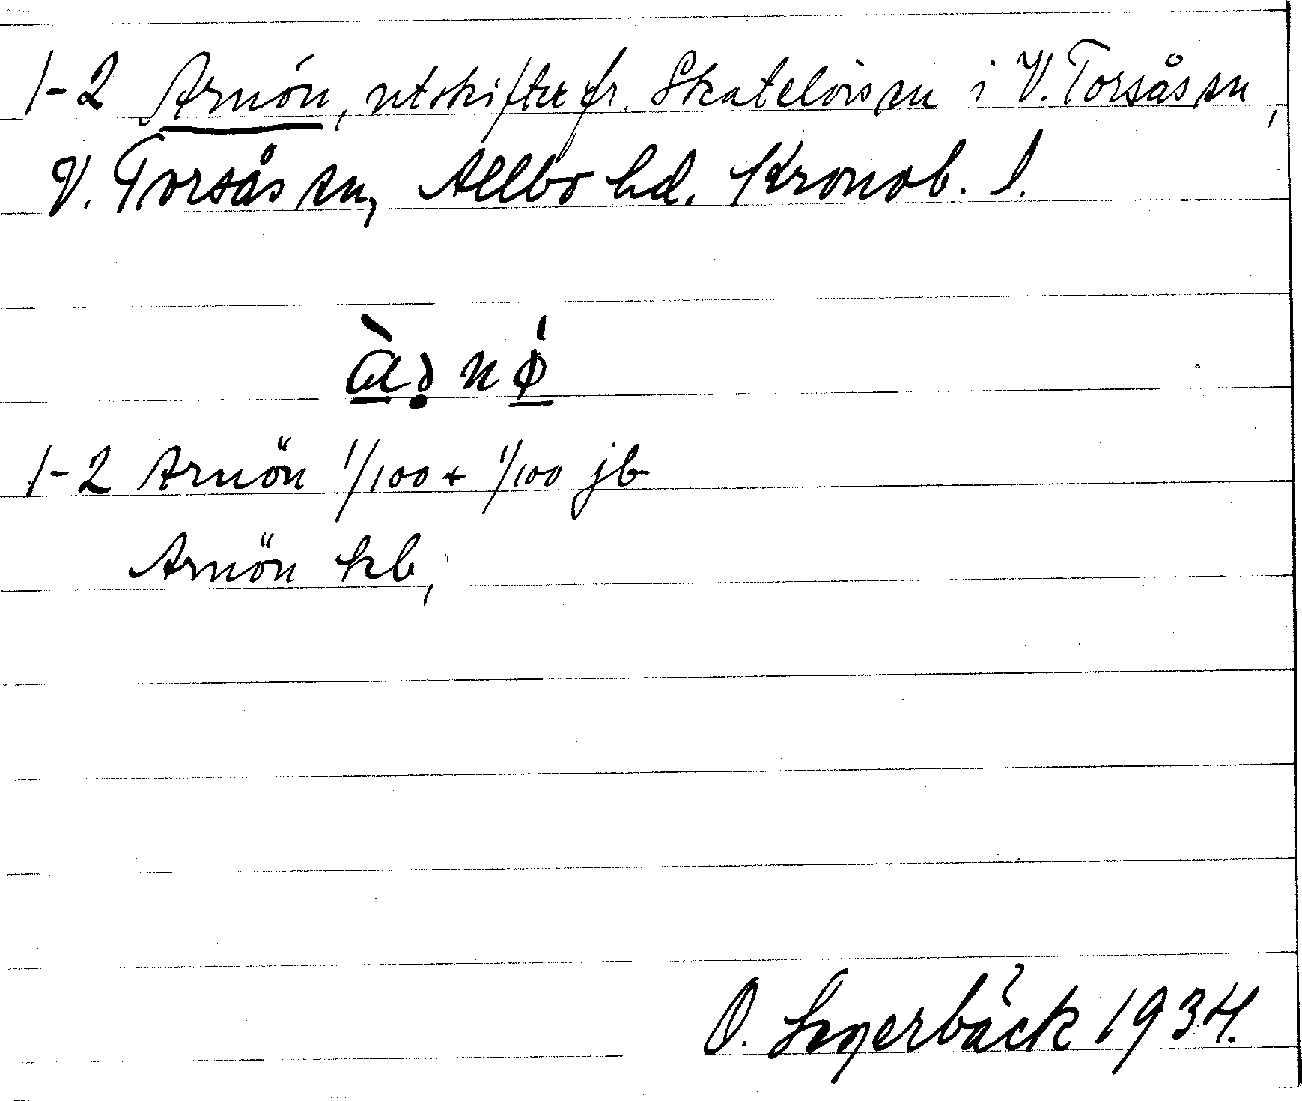 1-2 Arnön, utskifter fr. Skatelövs sn i V. Torsås sn,
V. Torsås sn, Allbo hd. Kronob. l.
1-2 Arnön 1/100 + 1/100 jb
Arnön kb,
O. 1934.